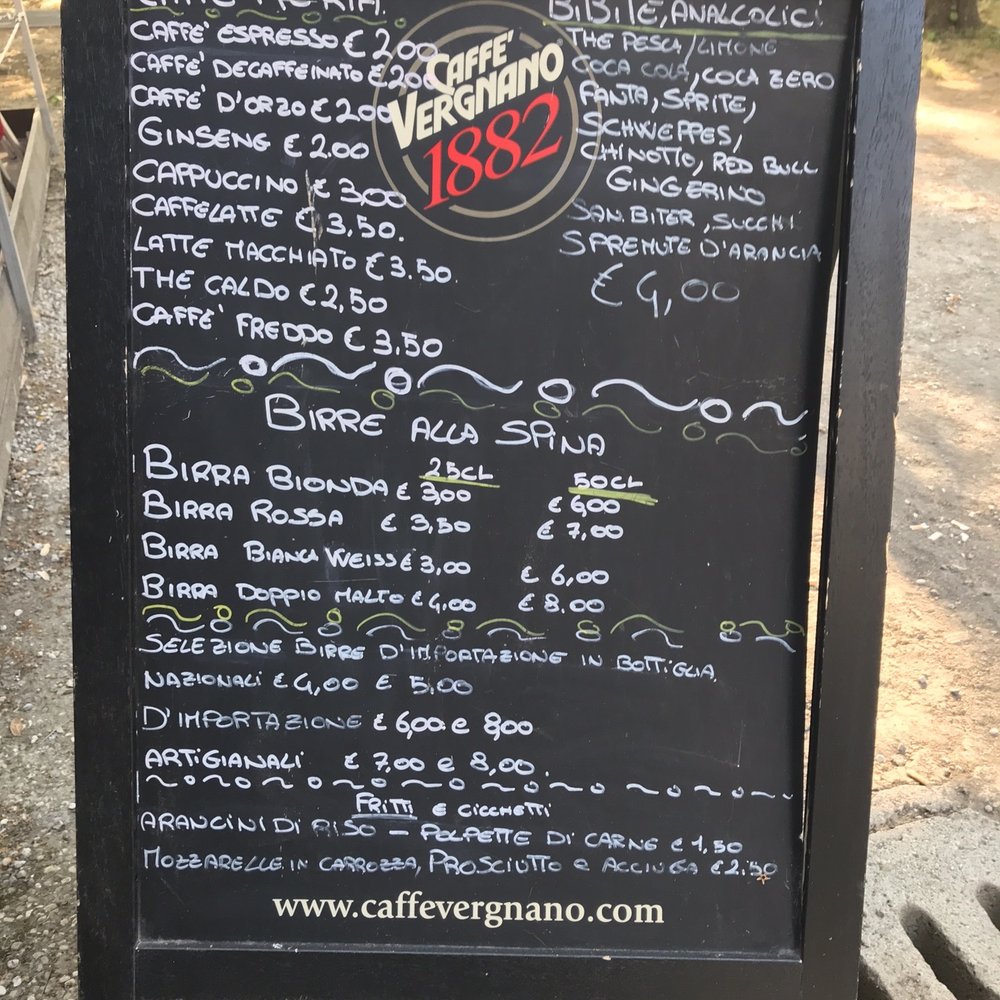 CAFFETTERIA
CAFFE' ESPRESSO € 2.00
CAFFE' DECAFFEINATO € 2.00
CAFFE' D'ORZO € 2.00
GINSENG € 2.00
CAPPUCCINO € 3,00
CAFFELATTE € 3,50.
LATTE MACCHIATO € 3.50.
THE CALDO € 2,50
CAFFE' FREDDO € 3,50
CAFFE'
VERGNANO
1882
BIBITE, ANALCOLICI
THE PESCA/LIMONE
COCA COLA, COCA ZERO
FANTA, SPRITE,
SCHWEPPES,
CHINOTTO, RED BULL
GINGERINO
SAN. BITER, SUCCHI
SPREMUTE D'ARANCIA
€ 4,00
BIRRE ALLA SPINA
25CL 50CL
BIRRA BIONDA € 3,00 € 6,00
BIRRA ROSSA € 3,50 € 7,00
BIRRA BIANCA WEISS € 3,00 € 6,00
BIRRA DOPPIO MALTO € 4,00 € 8.00
SELEZIONE BIRRE D'IMPORTAZIONE IN BOTTIGLIA.
NAZIONALI € 4,00 E 5,00
D'IMPORTAZIONE € 6,00. e 8,00
ARTIGIANALI € 7,00 e 8,00.
FRITTI E CICCHETTI
ARANCINI DI RISO – POLPETTE DI CARNE € 1,50
MOZZARELLE IN CARROZZA, PROSCIUTTO e ACCIUGA € 2.50
www.caffevergnano.com